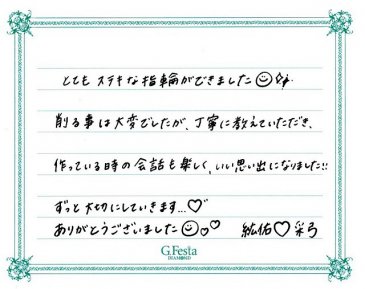 とても ステキな指輪ができました☺✨
削る事は大変でしたが、丁寧に教えていただき、
作っている時の会話も楽しく、いい思い出になりました!!
ずっと大切にしていきます…♡
ありがとうございました☺♡♡ 紘佑♡彩弓
G.Festa
DIAMOND